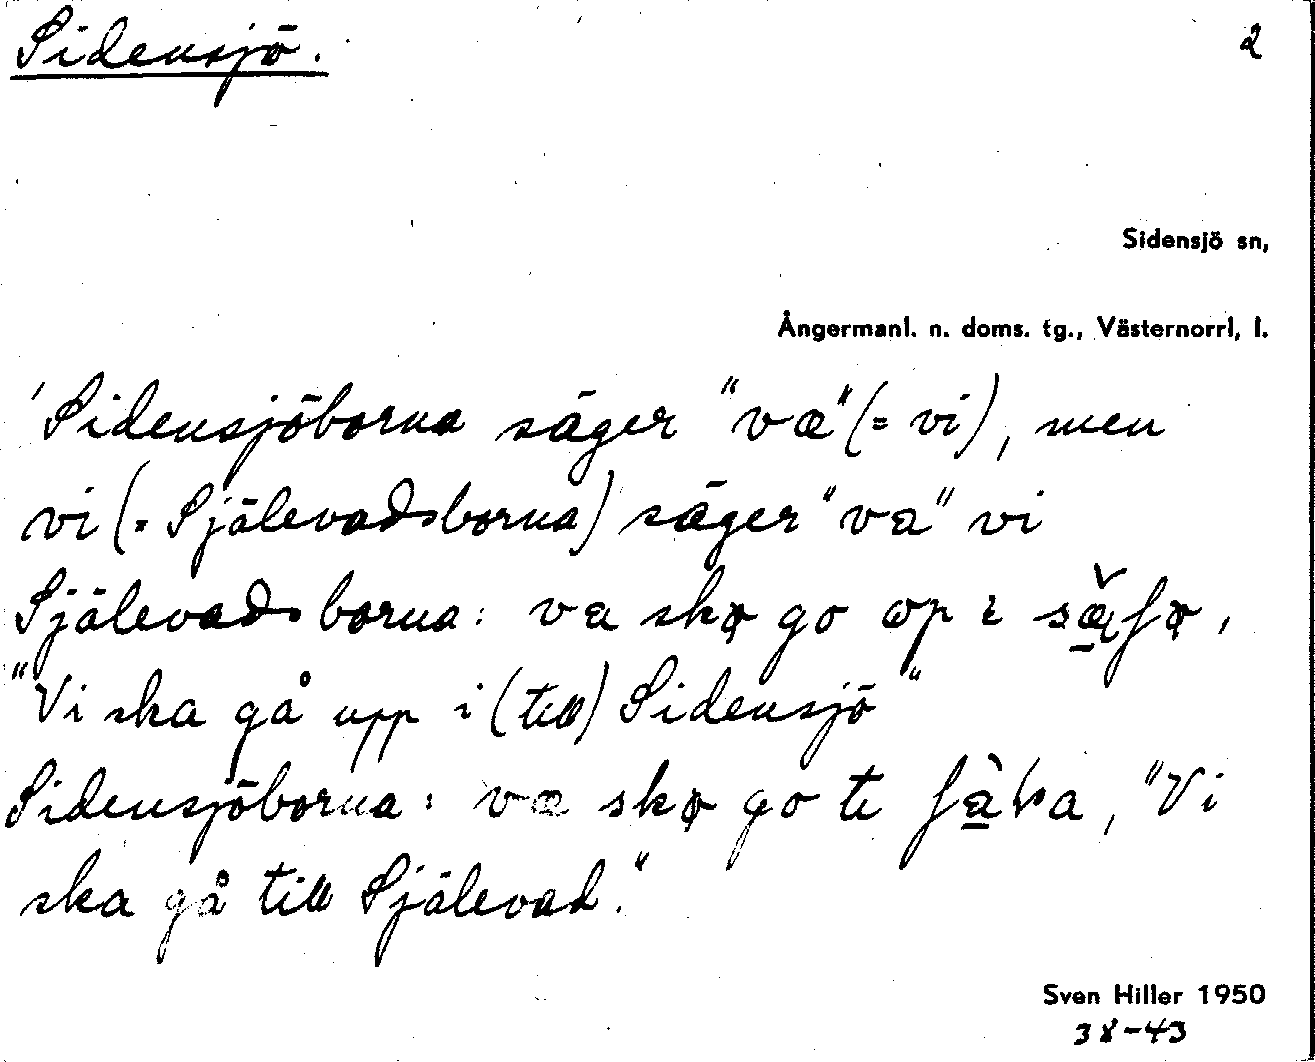 Sidensjö.
2
Sidensjö sn,
Ångermanl. n. doms. tg., Västernorrl, l.
'Sidensjöborna säger "væ" (= vi), men
vi (= Själevadsborna) säger "va" vi
Själevadsborna: va go op i
"Vi ska gå upp i (till) Sidensjö"
Sidensjöborna: væ go te "Vi
ska gå till Själevad."
Sven Hiller 1950
38-43